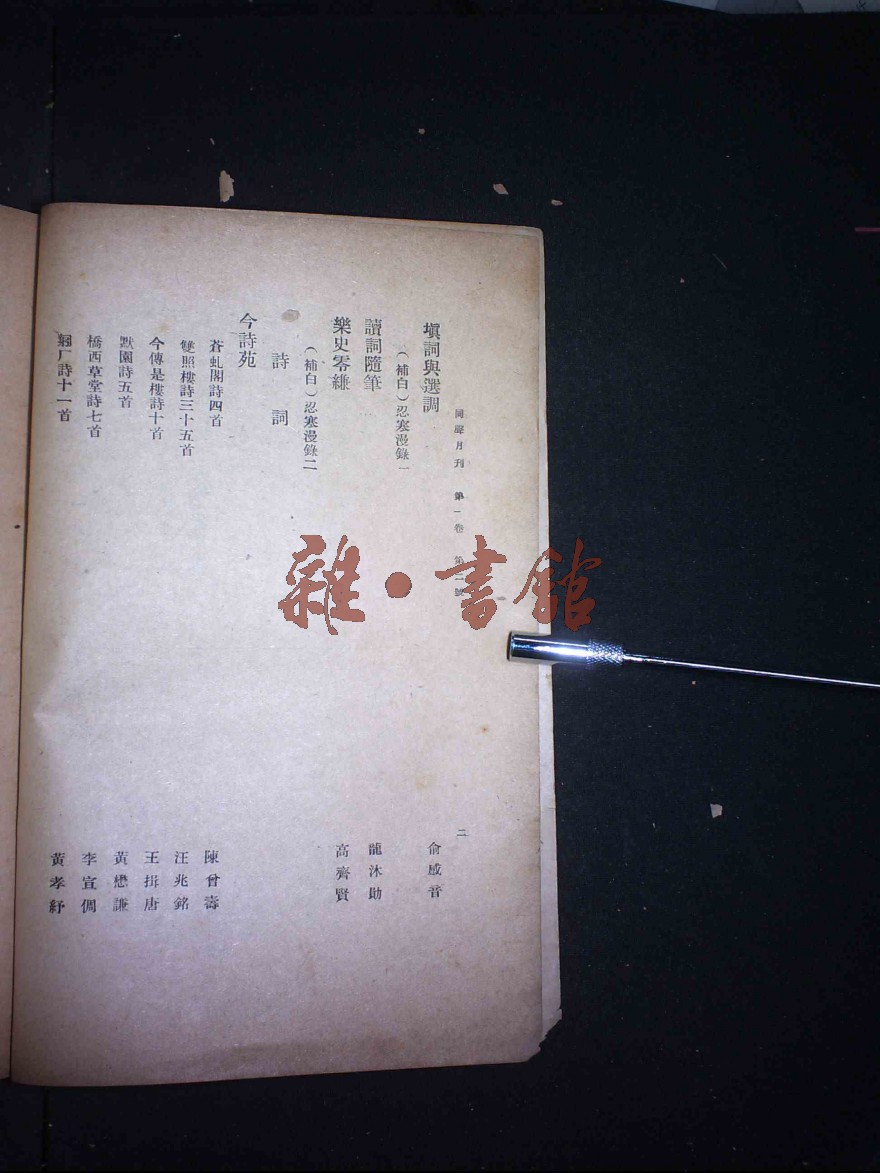 同聲月刊 第一卷 第二號 二
塡詞與選調 俞感音
（補白）忍寒漫錄一
讀詞隨筆 龍沐勛
樂史零縑 高齊賢
（補白）忍寒漫錄二
詩詞
今詩苑
蒼虬閣詩四首 陳曾壽
雙照樓詩三十五首 汪兆銘
今傳是樓詩十首 王揖唐
默園詩五首 黃懋謙
橋西草堂詩七首 李宣倜
厂詩十一首 黃孝紓
雜·書館